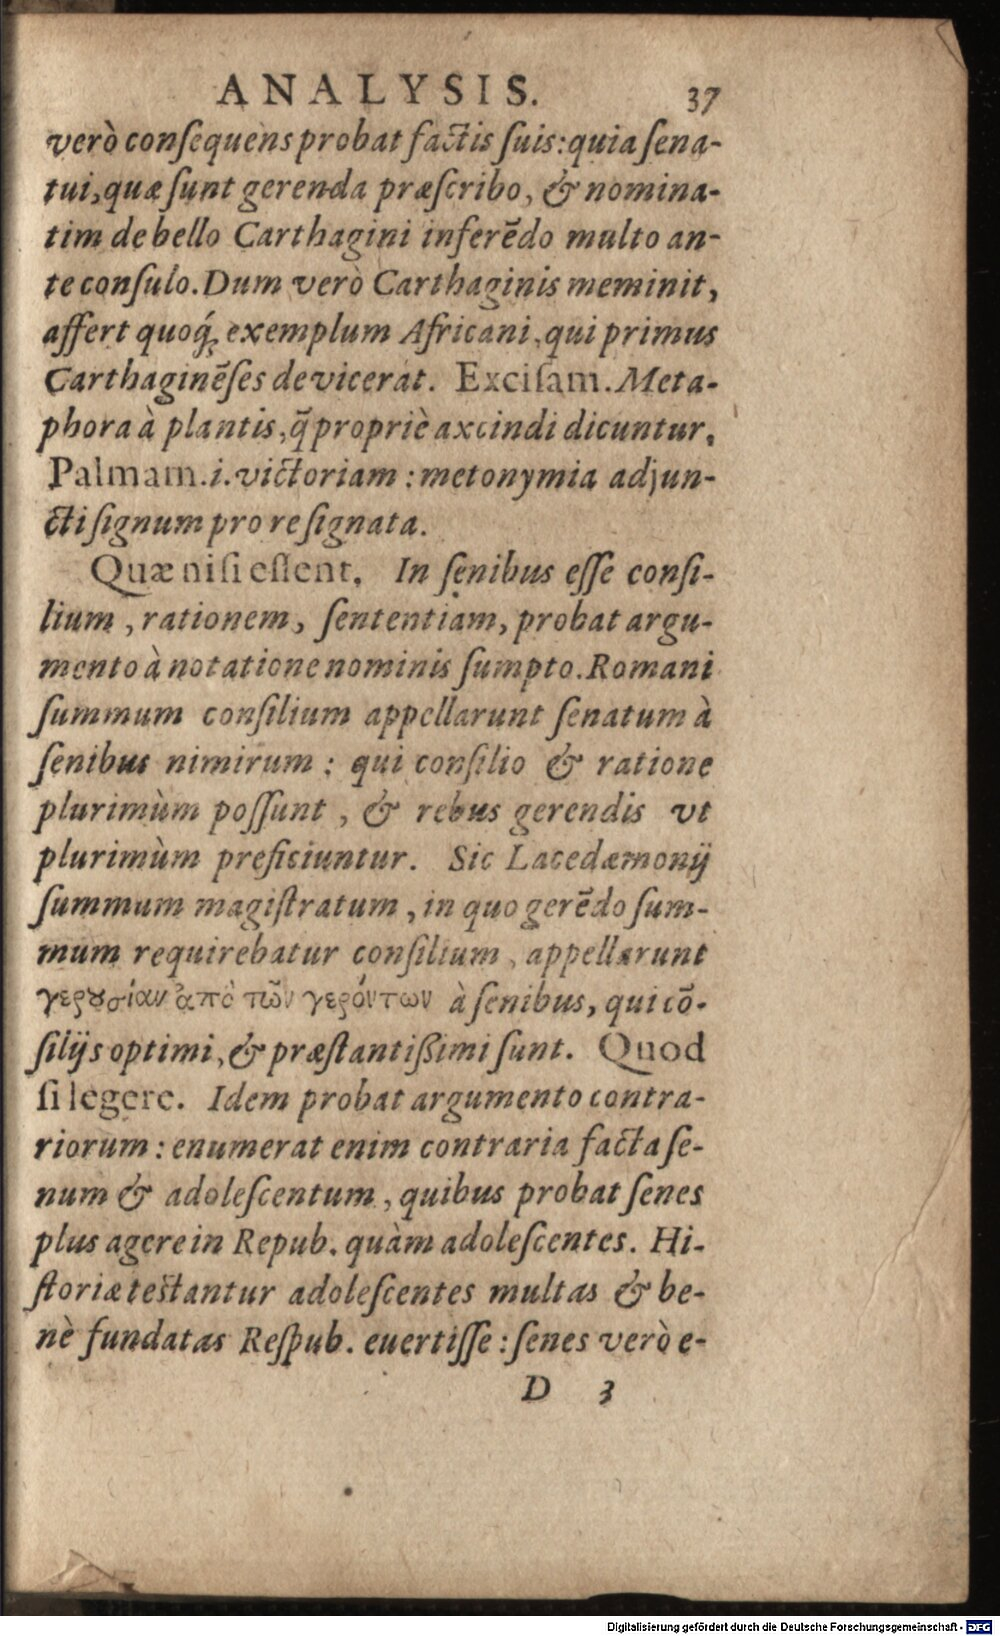 ANALYSIS. 37
verò conſequens probat factis ſuis: quia ſena-
tui, quæ ſunt gerenda præſcribo, & nomina-
tim de bello Carthagini inferẽdo multo an-
te conſulo. Dum verò Carthaginis meminit,
affert quoq́ꝫ exemplum Africani, qui primus
Carthaginẽſes devicerat. Exciſam. Meta-
phora à plantis, q̃ propriè axcindi dicuntur.
Palmam. i. victoriam: metonymia adjun-
cti ſignum pro re ſignata.
Quæ niſi eſſent. In ſenibus eſſe conſi-
lium, rationem, ſententiam, probat argu-
mento à notatione nominis ſumpto. Romani
ſummum conſilium appellarunt ſenatum à
ſenibus nimirum: qui conſilio & ratione
plurimùm poſſunt, & rebus gerendis vt
plurimùm preficiuntur. Sic Lacedæmonij
ſummum magiſtratum, in quo gerẽdo ſum-
mum requirebatur conſilium, appellarunt
γερȣσίαν ἀπὸ τῶν γερόντων à ſenibus, qui cõ-
ſilijs optimi, & præſtantißimi ſunt. Quod
ſi legere. Idem probat argumento contra-
riorum: enumerat enim contraria facta ſe-
num & adoleſcentum, quibus probat ſenes
plus agere in Repub. quàm adoleſcentes. Hi-
ſtoriæ teſtantur adoleſcentes multas & be-
nè fundatas Reſpub. euertiſſe: ſenes verò e-
D 3
Digitalisierung gefördert durch die Deutsche Forschungsgemeinschaft - DFG